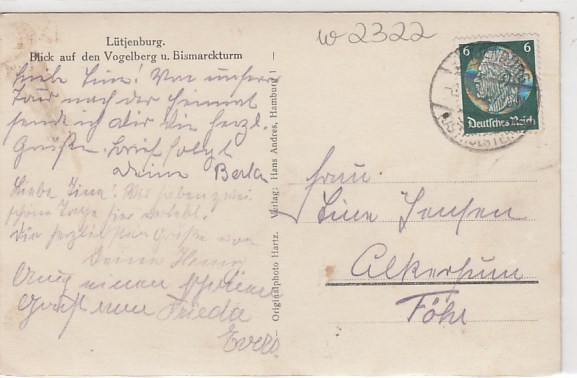 Lütjenburg.
Blick auf den Vogelberg u. Bismarckturm
w2322
Liebe Line! Von unserer
Tour nach der Heimat
sende ich dir die herzl.
Grüße. Brief folgt
deine Berta
Liebe Line! Wir haben zwei
schöne Tage hier verlebt.
Die herzlichsten Grüße von
Deine
Auch einen schönen
Gruß von Frieda
Evers
Originalphoto Hartz. Verlag: Hans Andres, Hamburg 1
6 6
Deutsches Reich
Frau
Line Jensen
Alkersum
Föhr